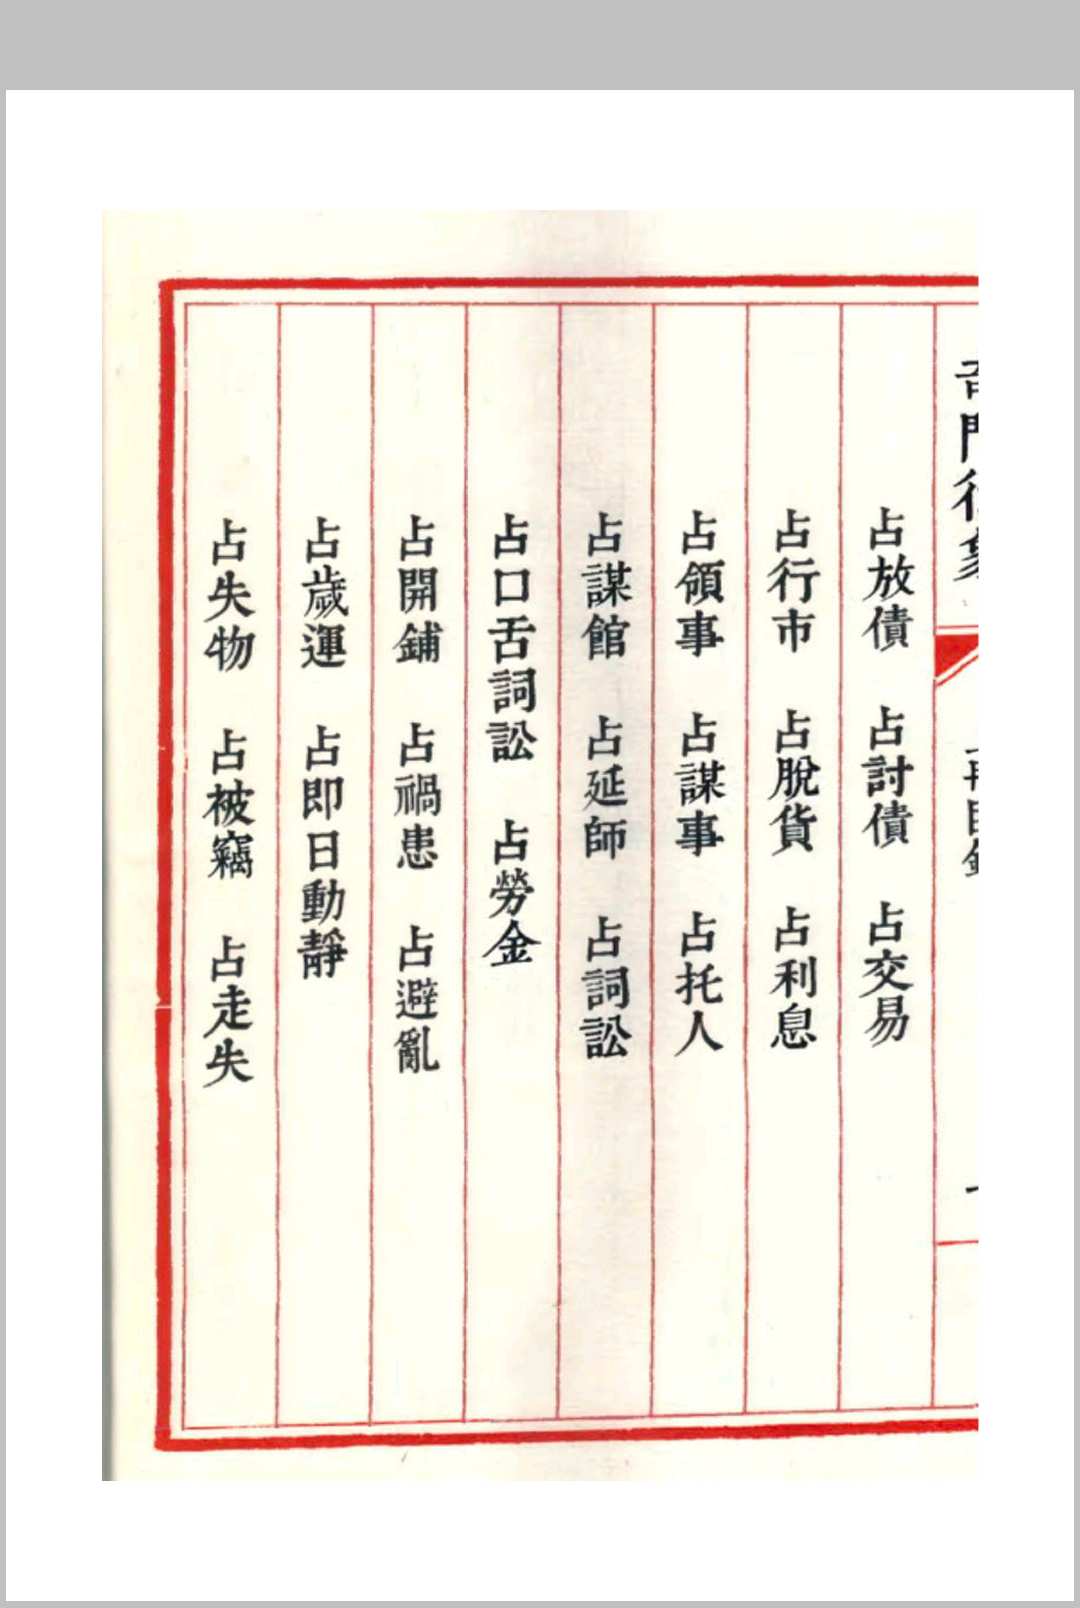 奇門衍象
目錄
占放債 占討債 占交易
占行市 占脫貨 占利息
占領事 占謀事 占托人
占謀館 占延師 占詞訟
占口舌詞訟 占勞金
占開鋪 占禍患 占避亂
占歲運 占即日動靜
占失物 占被竊 占走失